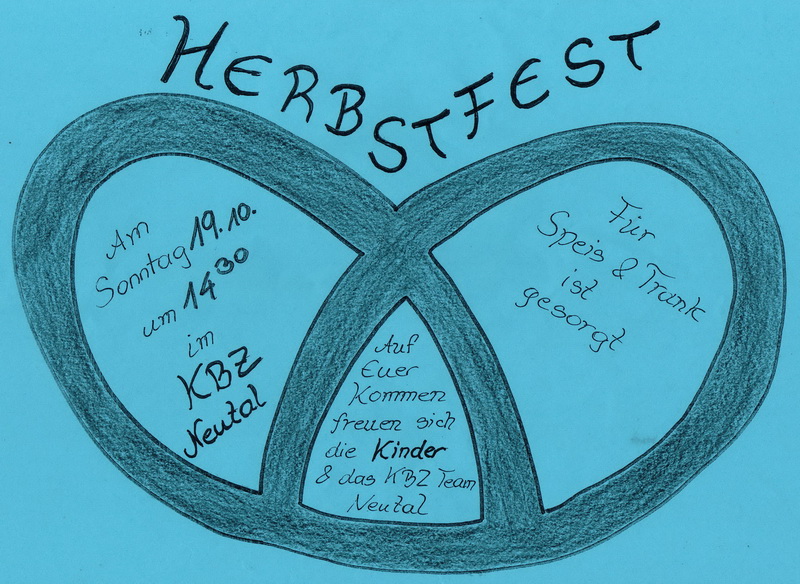 HERBSTFEST
Am
Sonntag 19.10.
um 14 30
im
KBZ
Neutal
Für
Speis & Trank
ist
gesorgt
Auf
Euer
Kommen
freuen sich
die Kinder
& das KBZ Team
Neutal